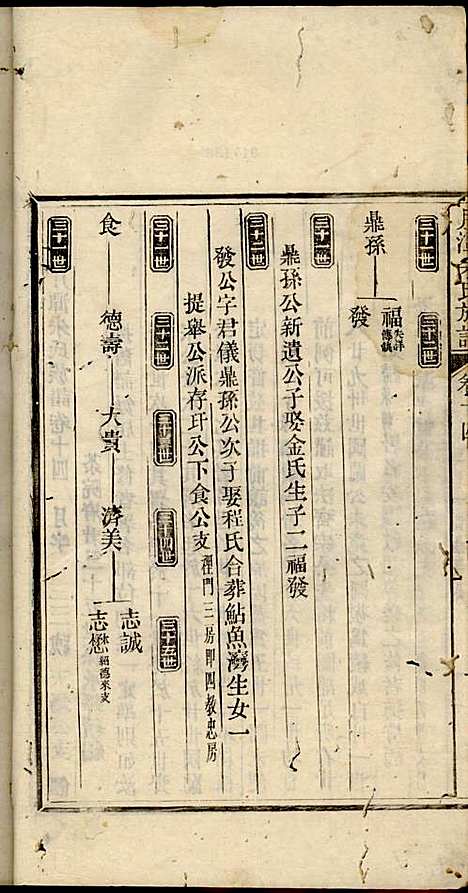 三十一世 三十二世
鼎孫 福 失詳
發
三十一世
鼎孫公新遺公子娶金氏生子二福發
三十二世
發公字君儀鼎孫公次子娶程氏合葬鮎魚灣生女一
提舉公派存玗公下食公支 程門三二房即四教忠房
三十一世 三十二世 三十三世 三十四世 三十五世
食 德壽 大貴 濟美 志誠
志懋 紹德來支